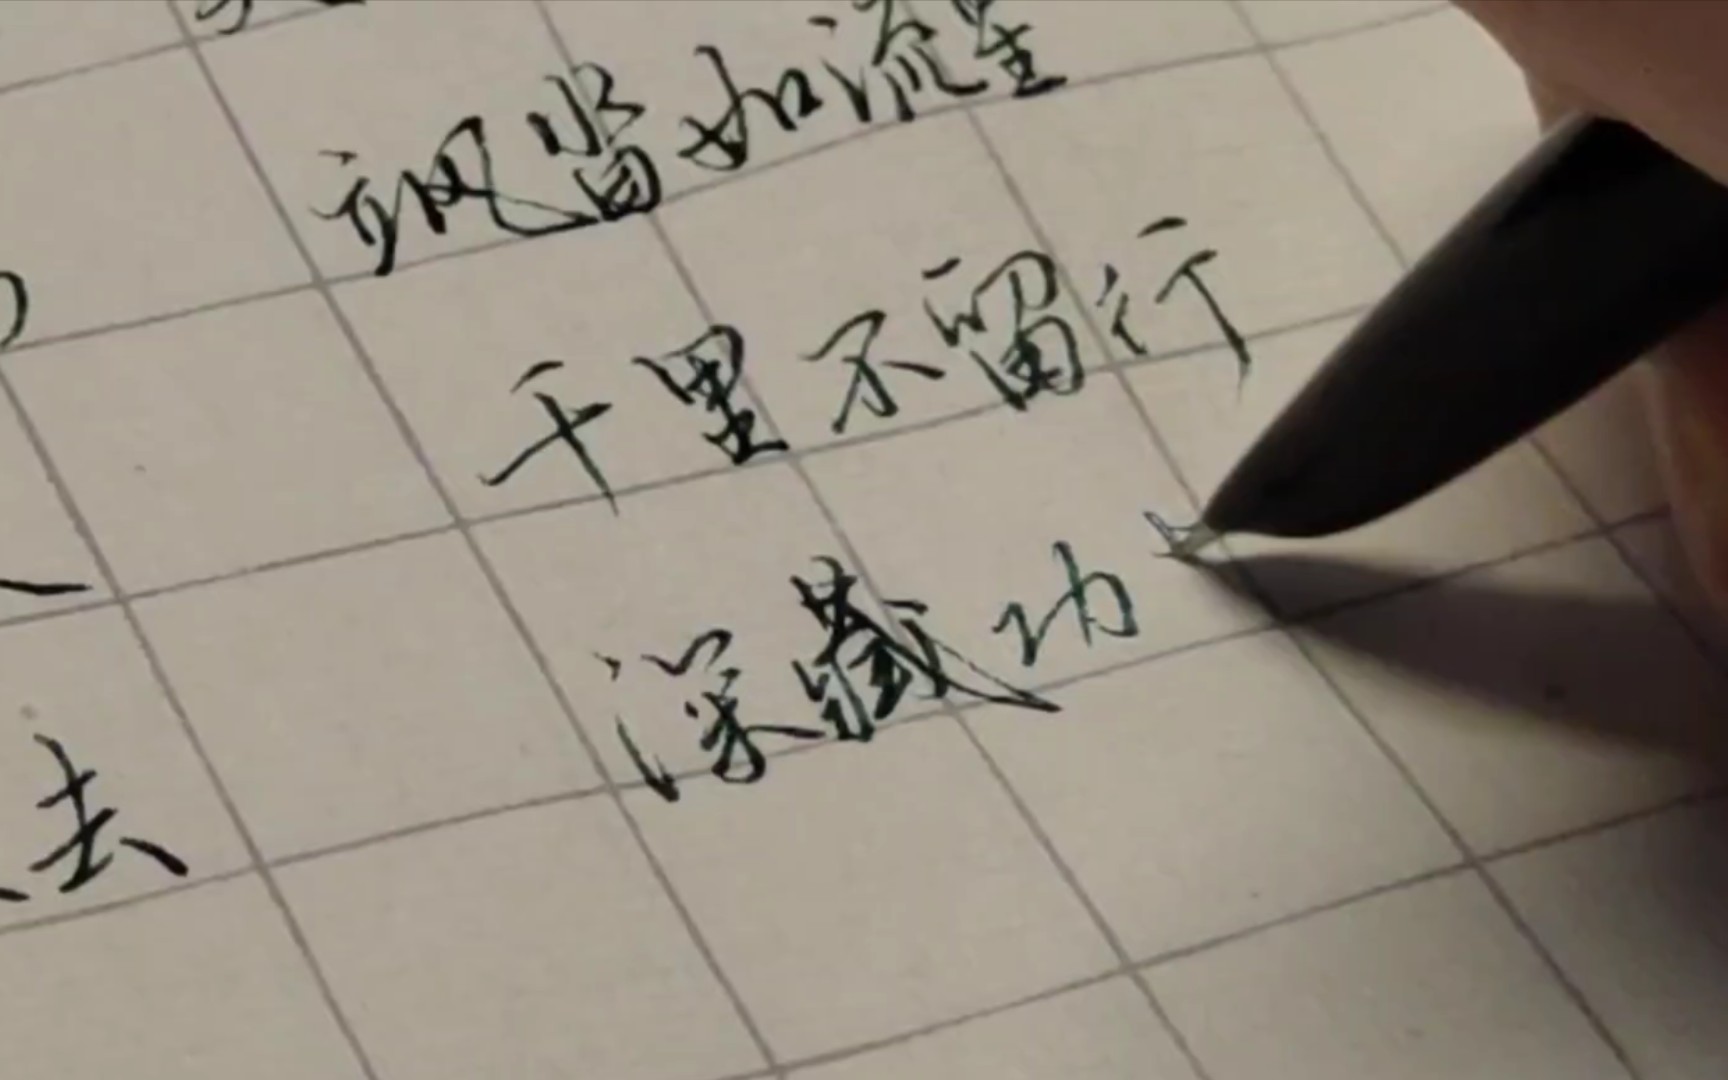 飒沓如流星
千里不留行
去
深藏功